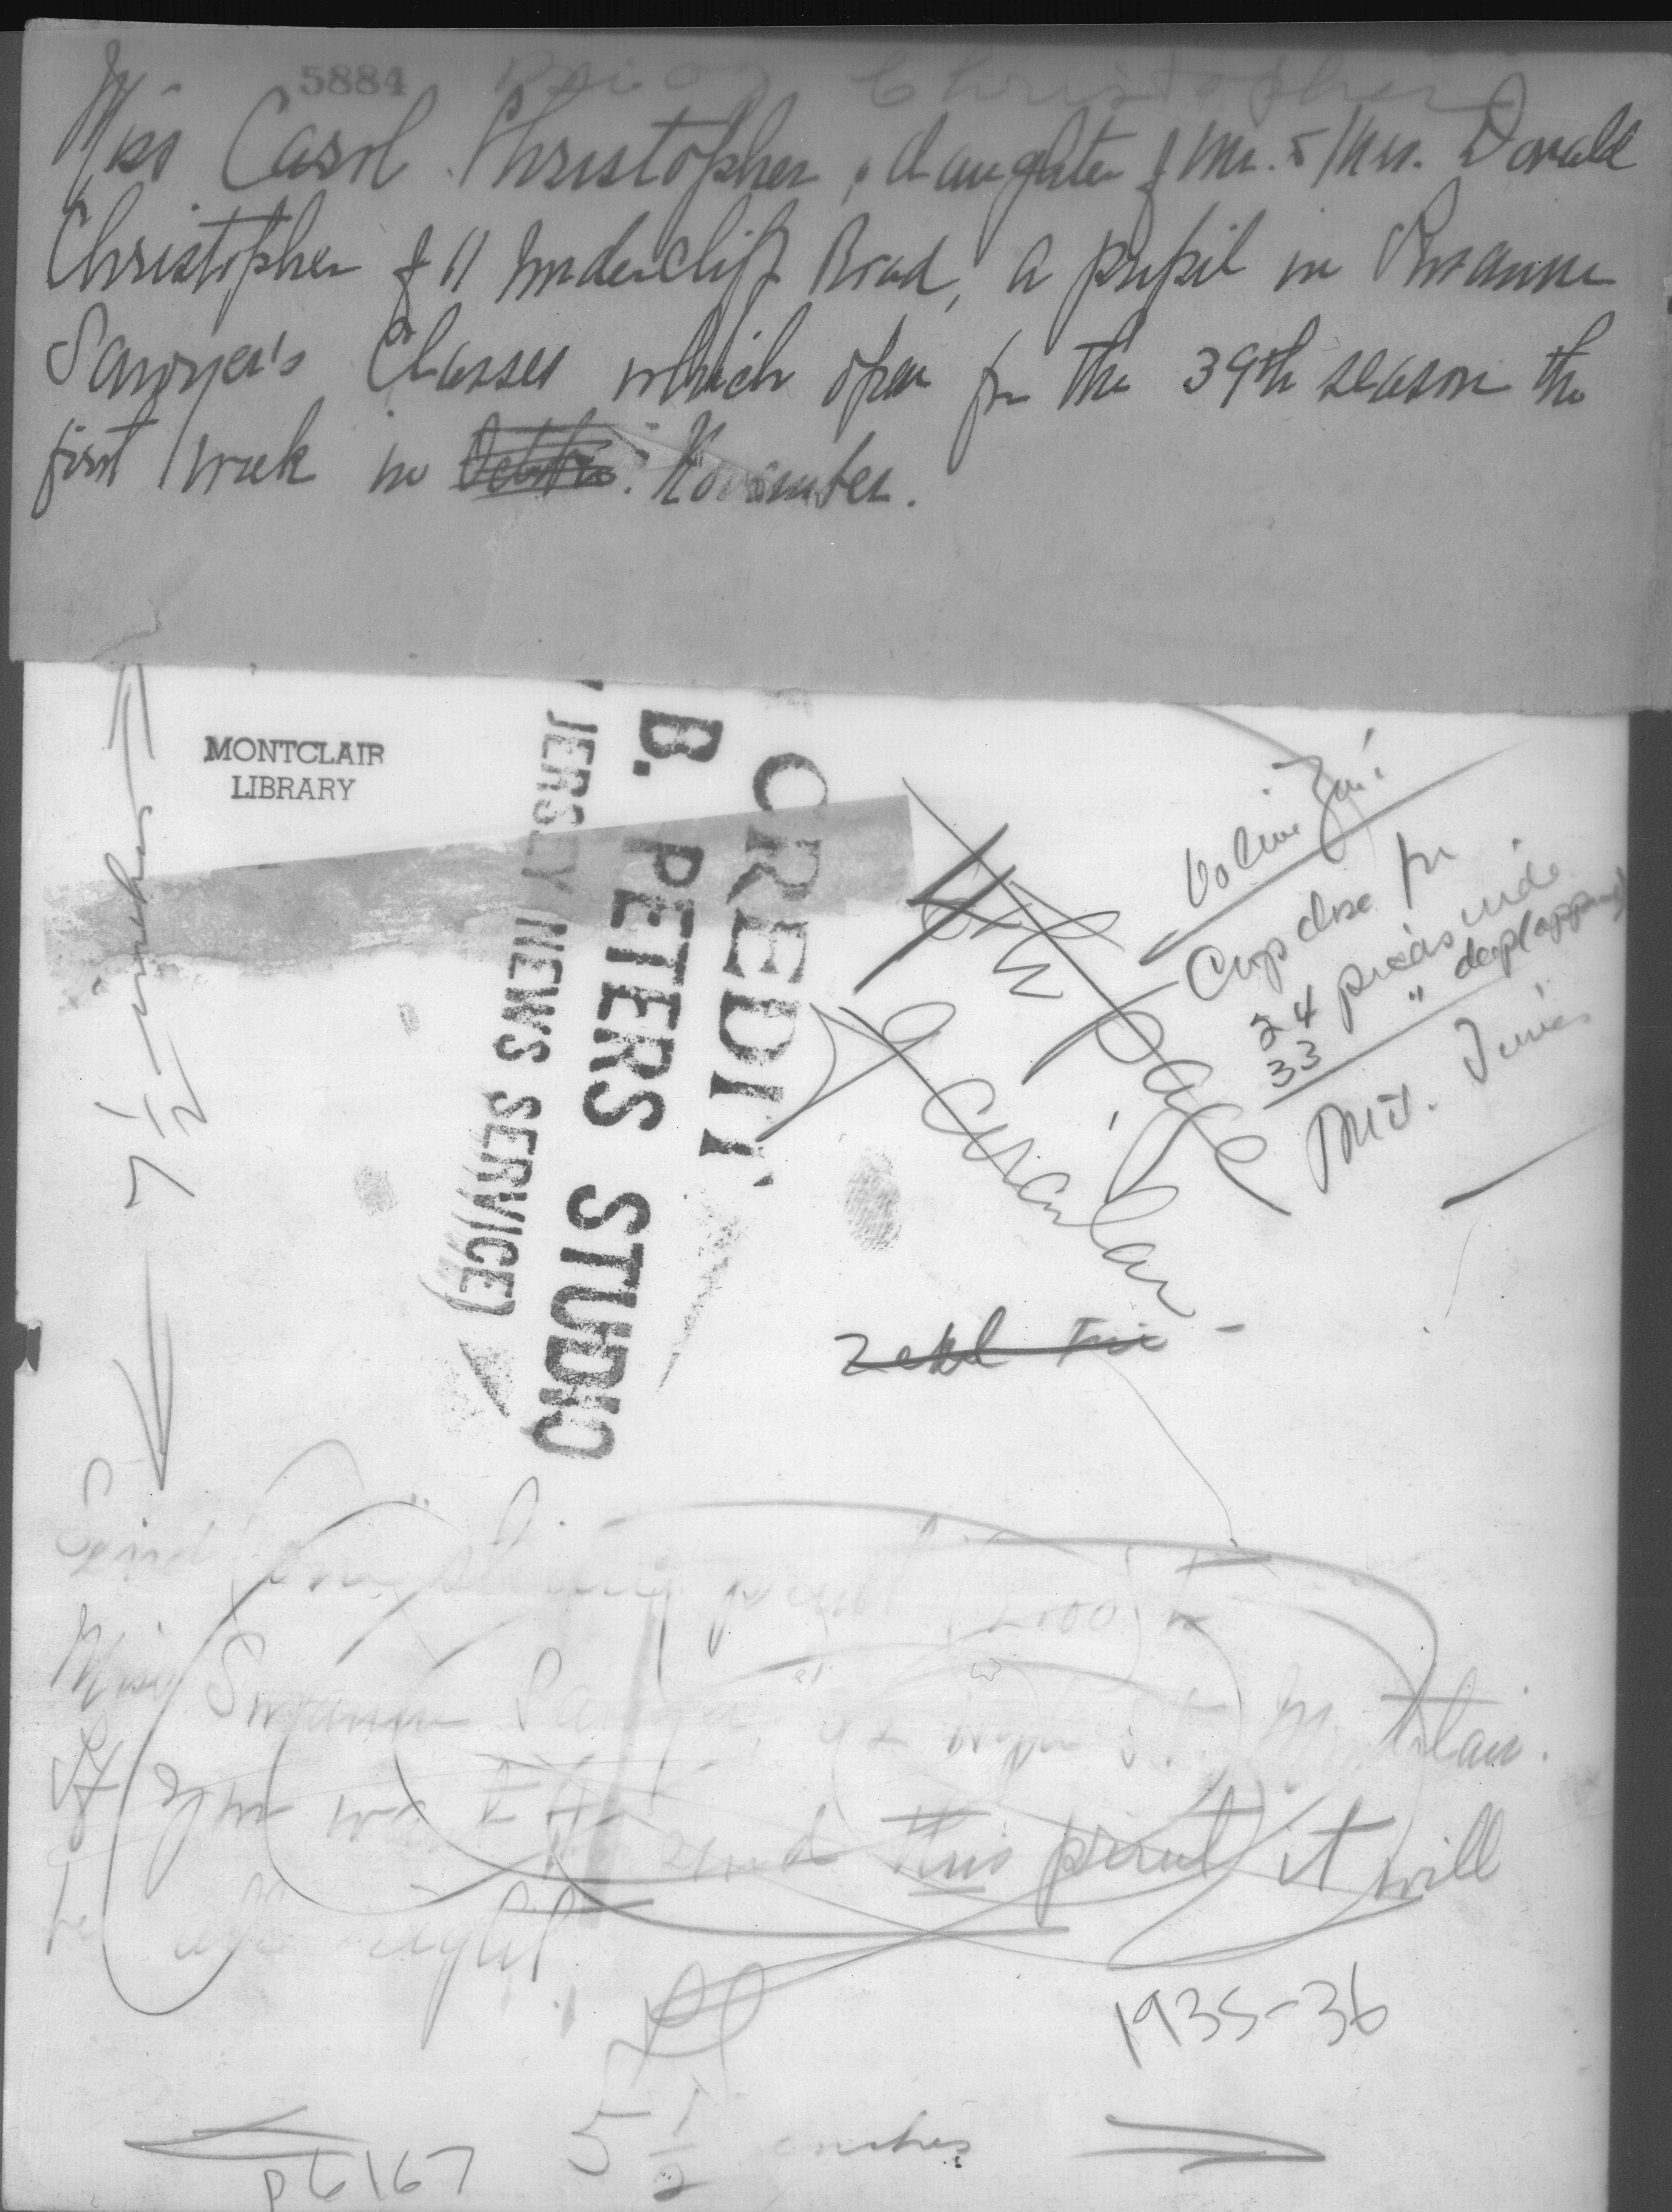 5884 Christopher
Miss Carol Christopher, daughter of Mr. & Mrs. Donald
Christopher of 11 Undercliff Road, a pupil in Susanne
Sawyer's Classes which open for the 39th season the
first week in October November.
MONTCLAIR
LIBRARY
7 1/2 inches
CREDIT
B. PETERS STUDIO
JERSEY NEWS SERVICE)
4th Page
Circular
Crop close for
24 picas wide
33 " deep
Mtc. Times
Send One print to
Miss Susanne St. Montclair.
If you send this print it will
be right
1935-36
5 1/2 inches
p6167